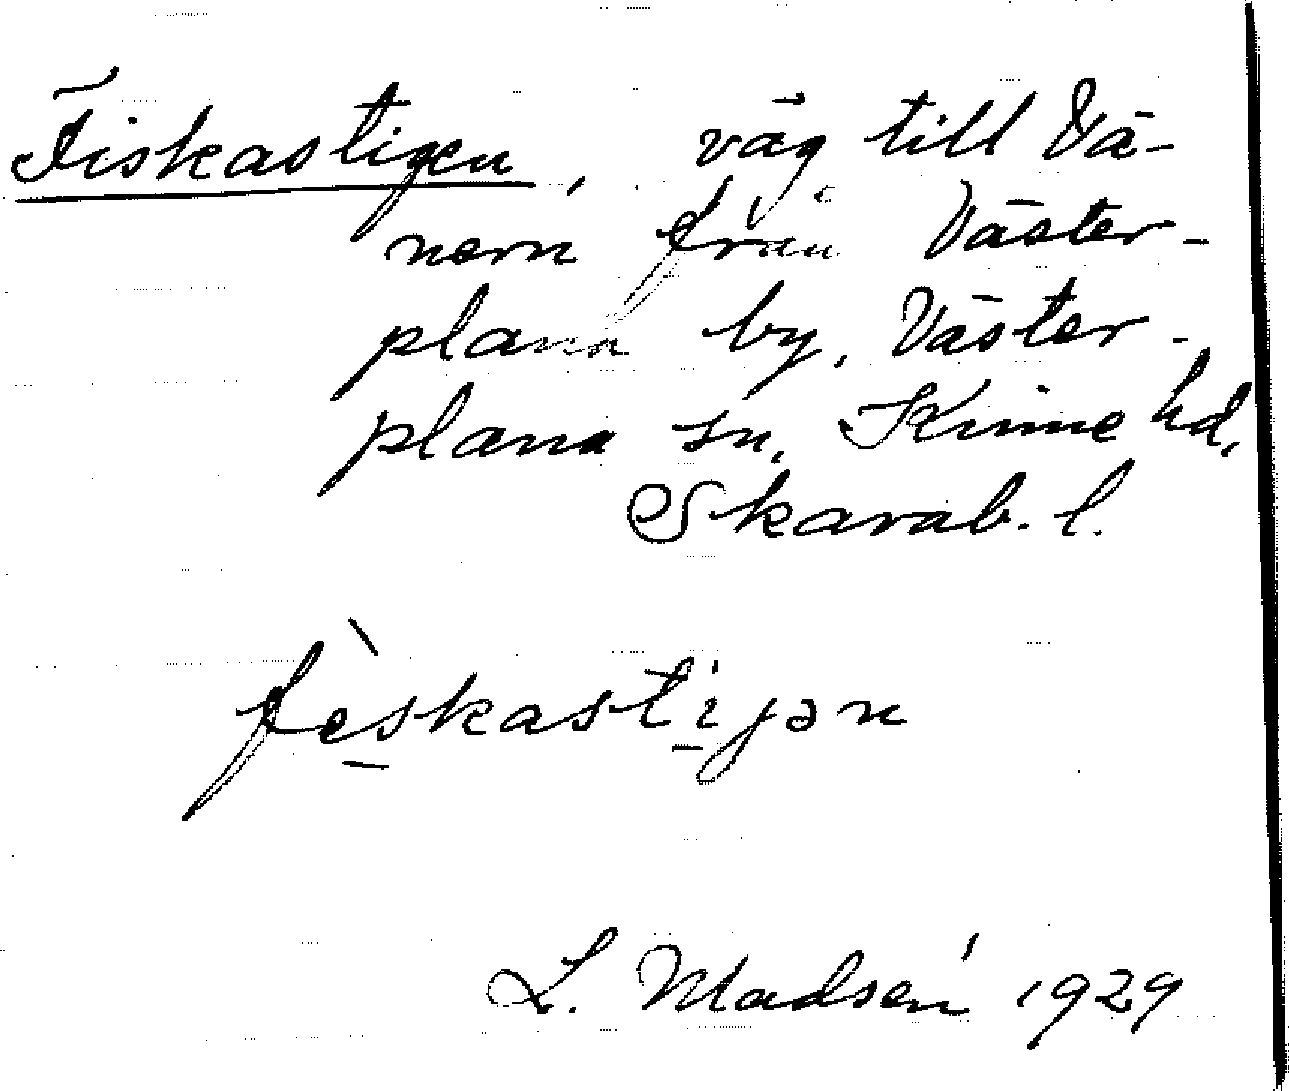 Fiskastigen, väg till Vä-
nern från Väster-
plana by, Väster-
plana sn, Kinne hd,
Skarab. l.
fèskastijən
L. Madsén 1929